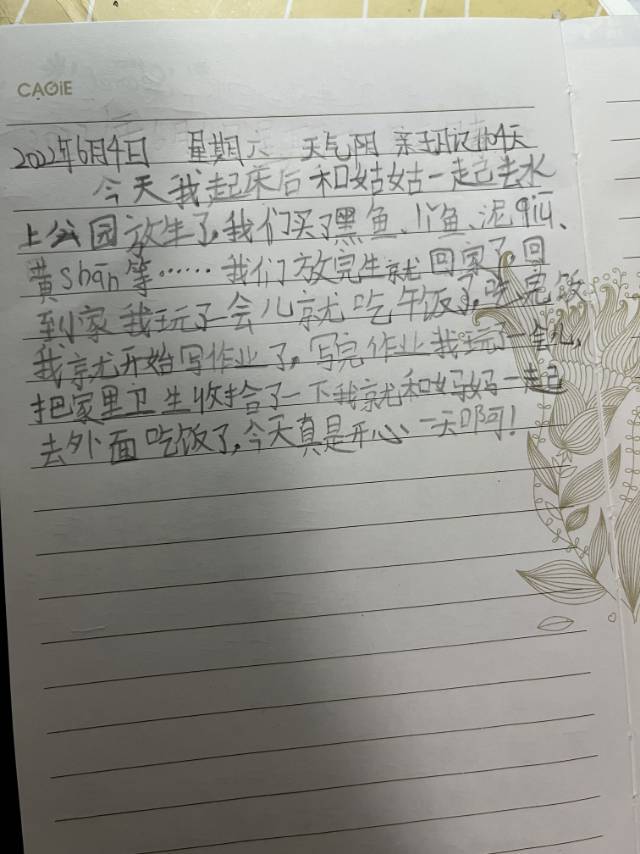 CAGiE
2022年6月4日 星期六 天气阴 亲子日记的4天
今天我起床后和姑姑一起去水
上公园放生了,我们买了黑鱼、小鱼、泥qiū、
黄shàn等……我们放完生就回家了回
到家我玩了一会儿就吃午饭了,吃完饭
我就开始写作业了,写完作业我玩了一会儿,
把家里卫生收拾了一下我就和妈妈一起
去外面吃饭了,今天真是开心、一天啊!